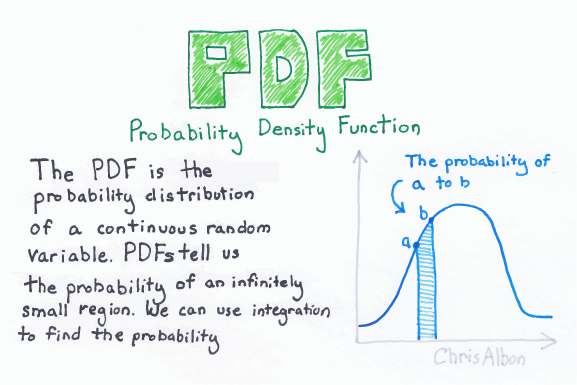 PDF
Probability Density Function
The PDF is the
probability distribution
of a continuous random
variable. PDFs tell us
the probability of an infinitely
small region. We can use integration
to find the probability
The probability of
a to b
b
a
Chris Albon